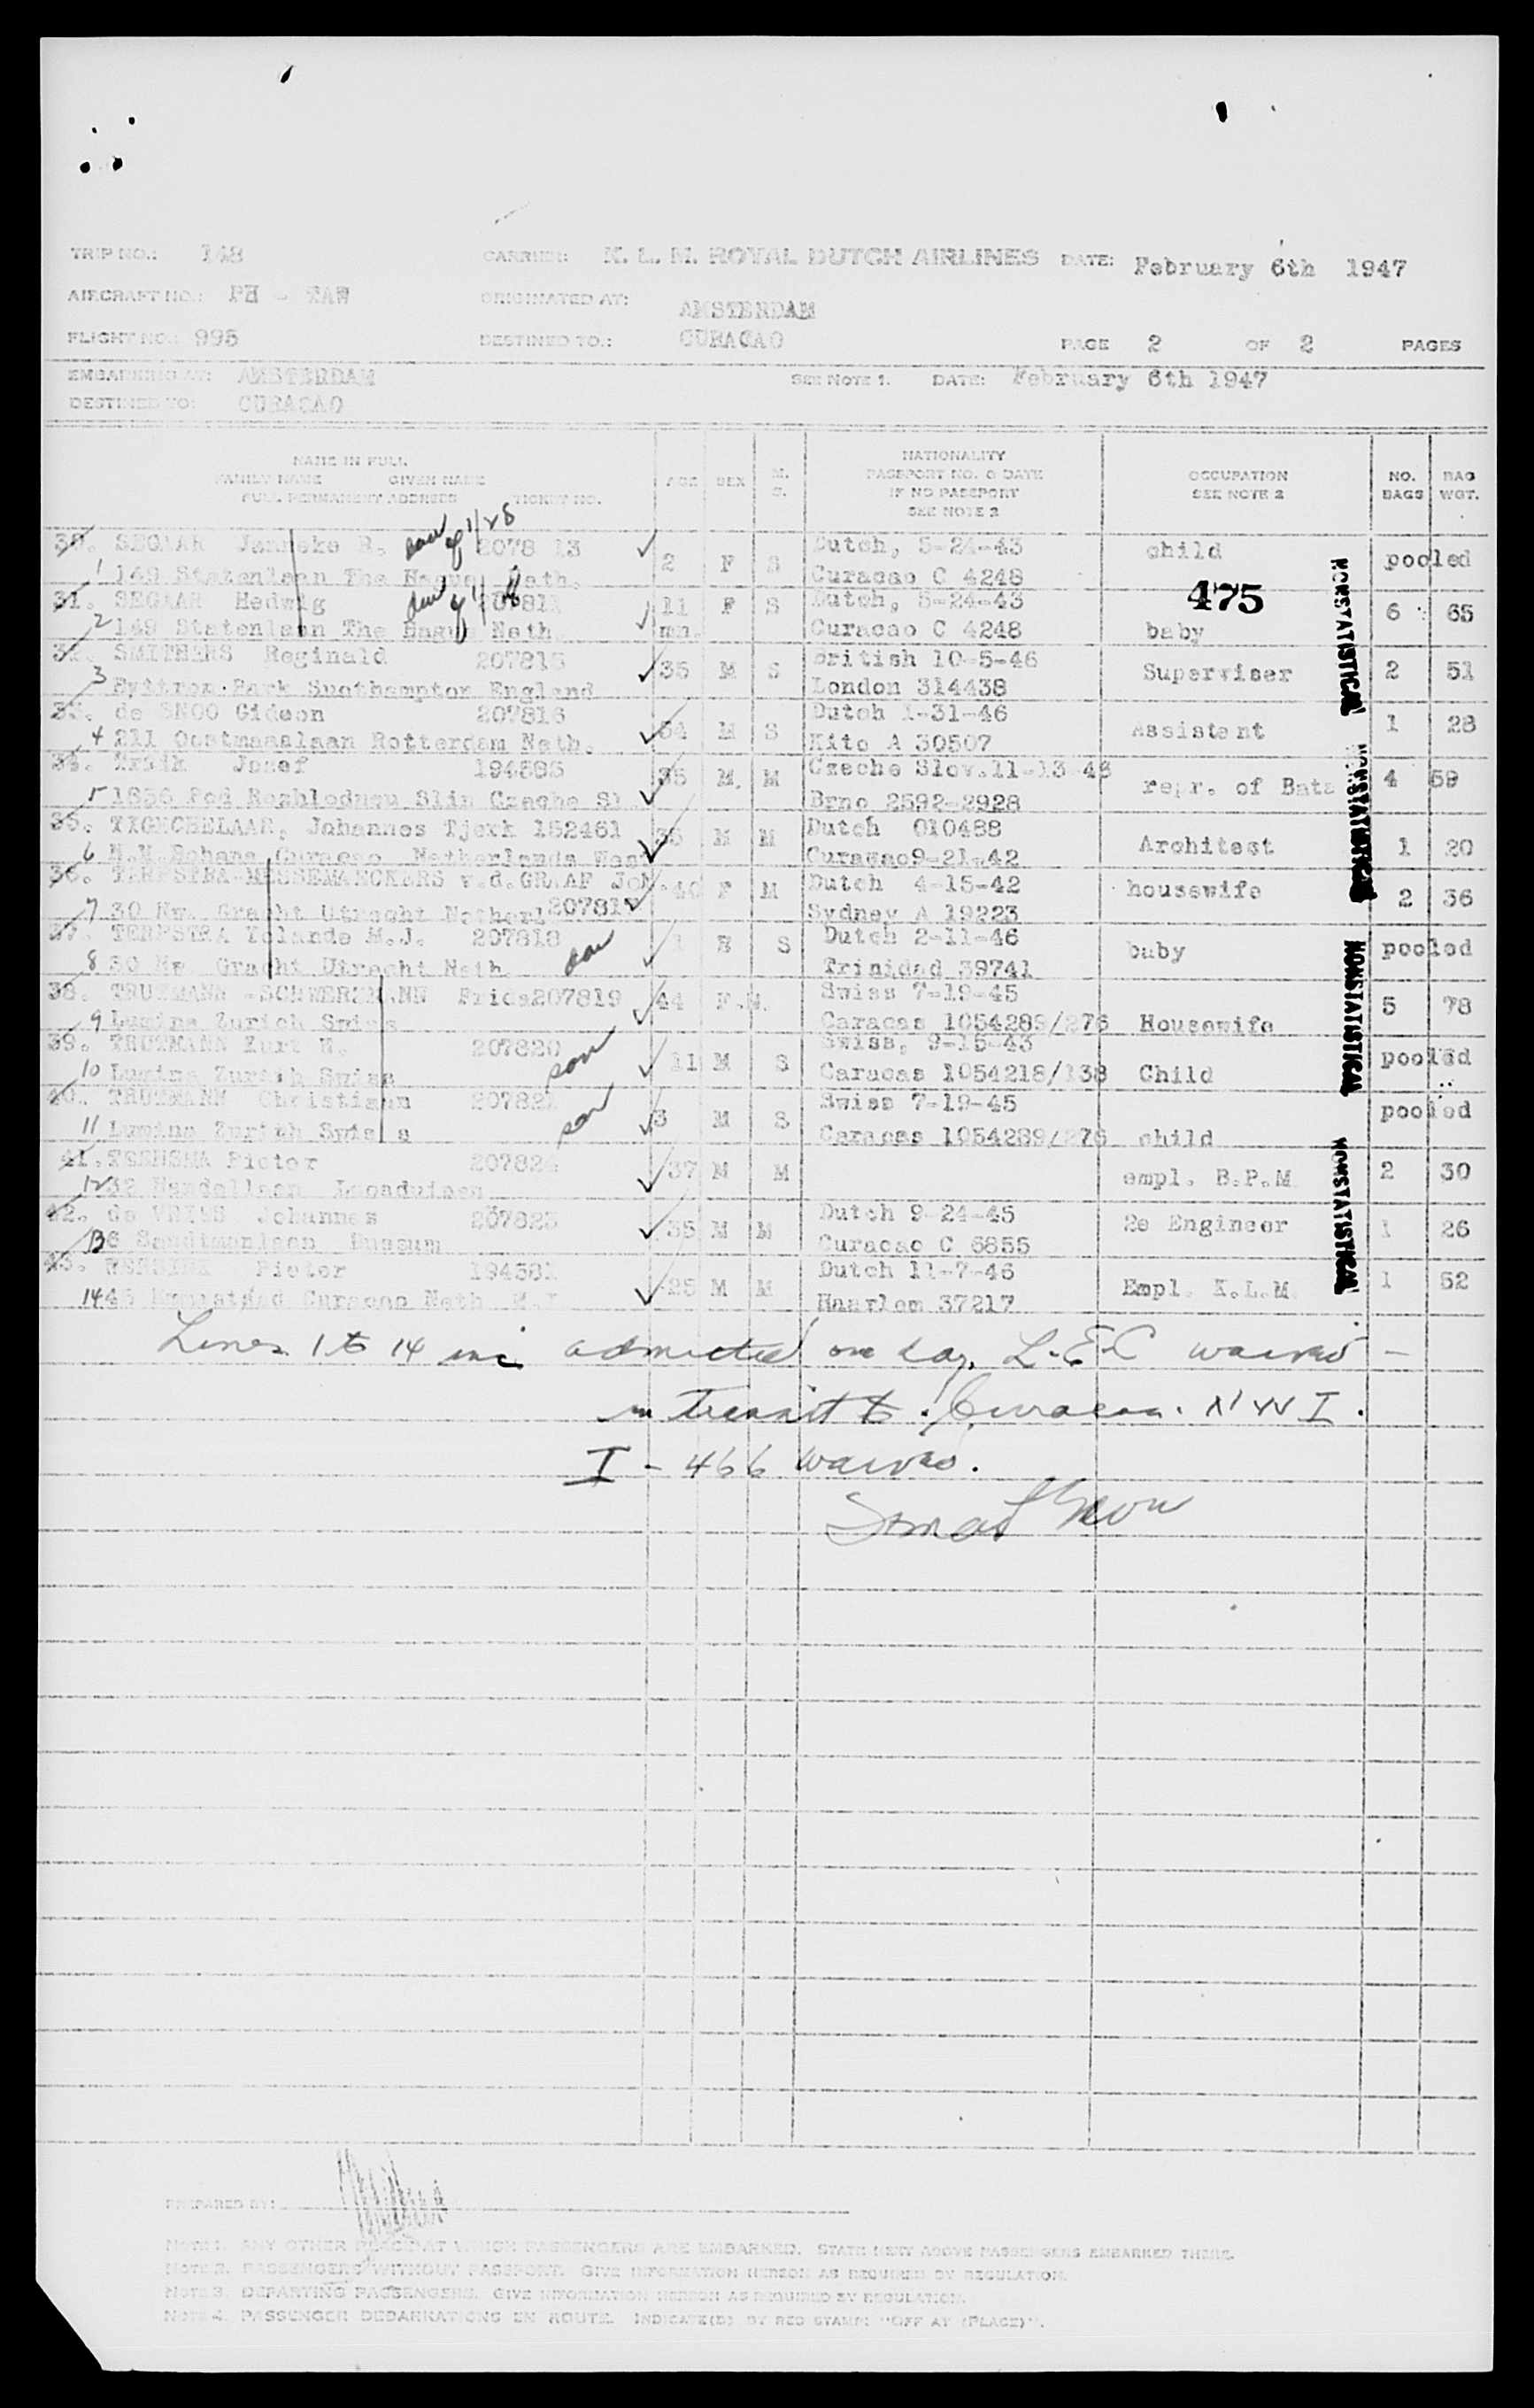 TRIP NO.: 148 CARRIER: K. L. M. ROYAL DUTCH AIRLINES DATE: February 6th 1947
AIRCRAFT NO.: PH - TAW ORIGINATED AT: AMSTERDAM
FLIGHT NO.: 995 DESTINED TO.: CURACAO PAGE 2 OF 2 PAGES
EMBARKING AT: AMSTERDAM SEE NOTE 1. DATE: February 6th 1947
DESTINED TO: CURACAO
NAME IN FULL
FAMILY NAME GIVEN NAME
FULL PERMANENT ADDRESS TICKET NO.
AGE SEX M. S.
NATIONALITY
PASSPORT NO. & DATE
IF NO PASSPORT
SEE NOTE 2
OCCUPATION
SEE NOTE 2
NO. BAGS
BAG WGT.
30. SEGAAR Janneke R. dau of 1/28 2078 13 2 F S Dutch, 5-24-43 child pooled
1 149 Statenlaan The Hague Neth. Curacao C 4248
475
31. SEGAAR Hedwig dau of 11 F S Dutch, 5-24-43 6 65
2 149 Statenlaan The Hague Neth. mn. Curacao C 4248 baby
32. SMITHERS Reginald 207815 35 M S British 10-5-46 Superviser 2 51
3 Park Southampton England London 314438
33. de SNOO Gideon 207816 M S Dutch 1-31-46 Assistent 1 28
4 211 Oostmaaslaan Rotterdam Neth. Kito A 30507
34. Jozef 35 M. M Czecho Slov. 11-13-46 repr. of Bata 4 59
5 1856 Pod Slin Czecho Sl Brno 2592-2928
35. TIGCHELAAR, Johannes Tjerk 152461 35 M M Dutch 010488 Architect 1 20
6 Curacao Netherlands West Curacao 9-21-42
36. TERPSTRA v.d. GRAAF Joh. 40 F M Dutch 4-15-42 housewife 2 36
7 30 Nw. Gracht Utrecht Netherl 207817 Sydney A 19223
37. TERPSTRA Yolande M.J. 207818 dau 1 S Dutch 2-11-46 baby pooled
8 30 Nw Gracht Utrecht Neth. Trinidad 39741
38. TRUTMANN - SCHWERZMANN Frida 207819 44 F. M. Swiss 7-19-45 5 78
9 Lumina Zurich Swiss Caracas 1054289/276 Housewife
39. TRUTMANN Kurt W. 207820 son 11 M S Swiss, 9-15-43 pooled
10 Lumina Zurich Swiss Caracas 1054218/138 Child
40. TRUTMANN Christiaan 207821 son 3 M S Swiss 7-19-45 pooled
11 Lumina Zurich Swiss Caracas 1054289/276 child
41. Pieter 37 M M empl. B.P.M. 2 30
12
42. de VRIES Johannes 207823 35 M M Dutch 9-24-45 2e Engineer 1 26
13 Bussum Curacao C 6855
43. Pieter 194381 25 M M Dutch 11-7-46 Empl. K.L.M. 1 52
14 Curacao Neth W.I Haarlem 37217
NONSTATISTICAL
NONSTATISTICAL
NONSTATISTICAL
NONSTATISTICAL
Lines 1 to 14 inc admitted one day, L.E.C waived -
in transit to Curacao. N W I.
I - 466 waived.
PREPARED BY:
NOTE 1. ANY OTHER PLACE AT WHICH PASSENGERS ARE EMBARKED. STATE NEXT ABOVE PASSENGERS EMBARKED THERE.
NOTE 2. PASSENGERS WITHOUT PASSPORT. GIVE INFORMATION HEREON AS REQUIRED BY REGULATION.
NOTE 3. DEPARTING PASSENGERS. GIVE INFORMATION HEREON AS REQUIRED BY REGULATION.
NOTE 4. PASSENGER DEBARKATIONS EN ROUTE. INDICATE(D) BY RED STAMP: "OFF AT (PLACE)".